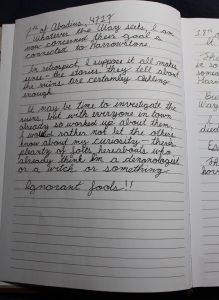 7th of Abadius, 4717
Whatever the Way seeks, I am
now concerned their goal is
connected to Harrowstone.
In retrospect, I suppose it all makes
sense - the stories they tell about
the ruins are certainly chilling
enough.
It may be time to investigate the
ruins, but with everyone in town
already so worked up about them,
I would rather not let the others
know about my curiosity - there's
plenty of folks hereabouts who
already think I'm a demonologist
or a witch or something.
Ignorant fools!!
18th